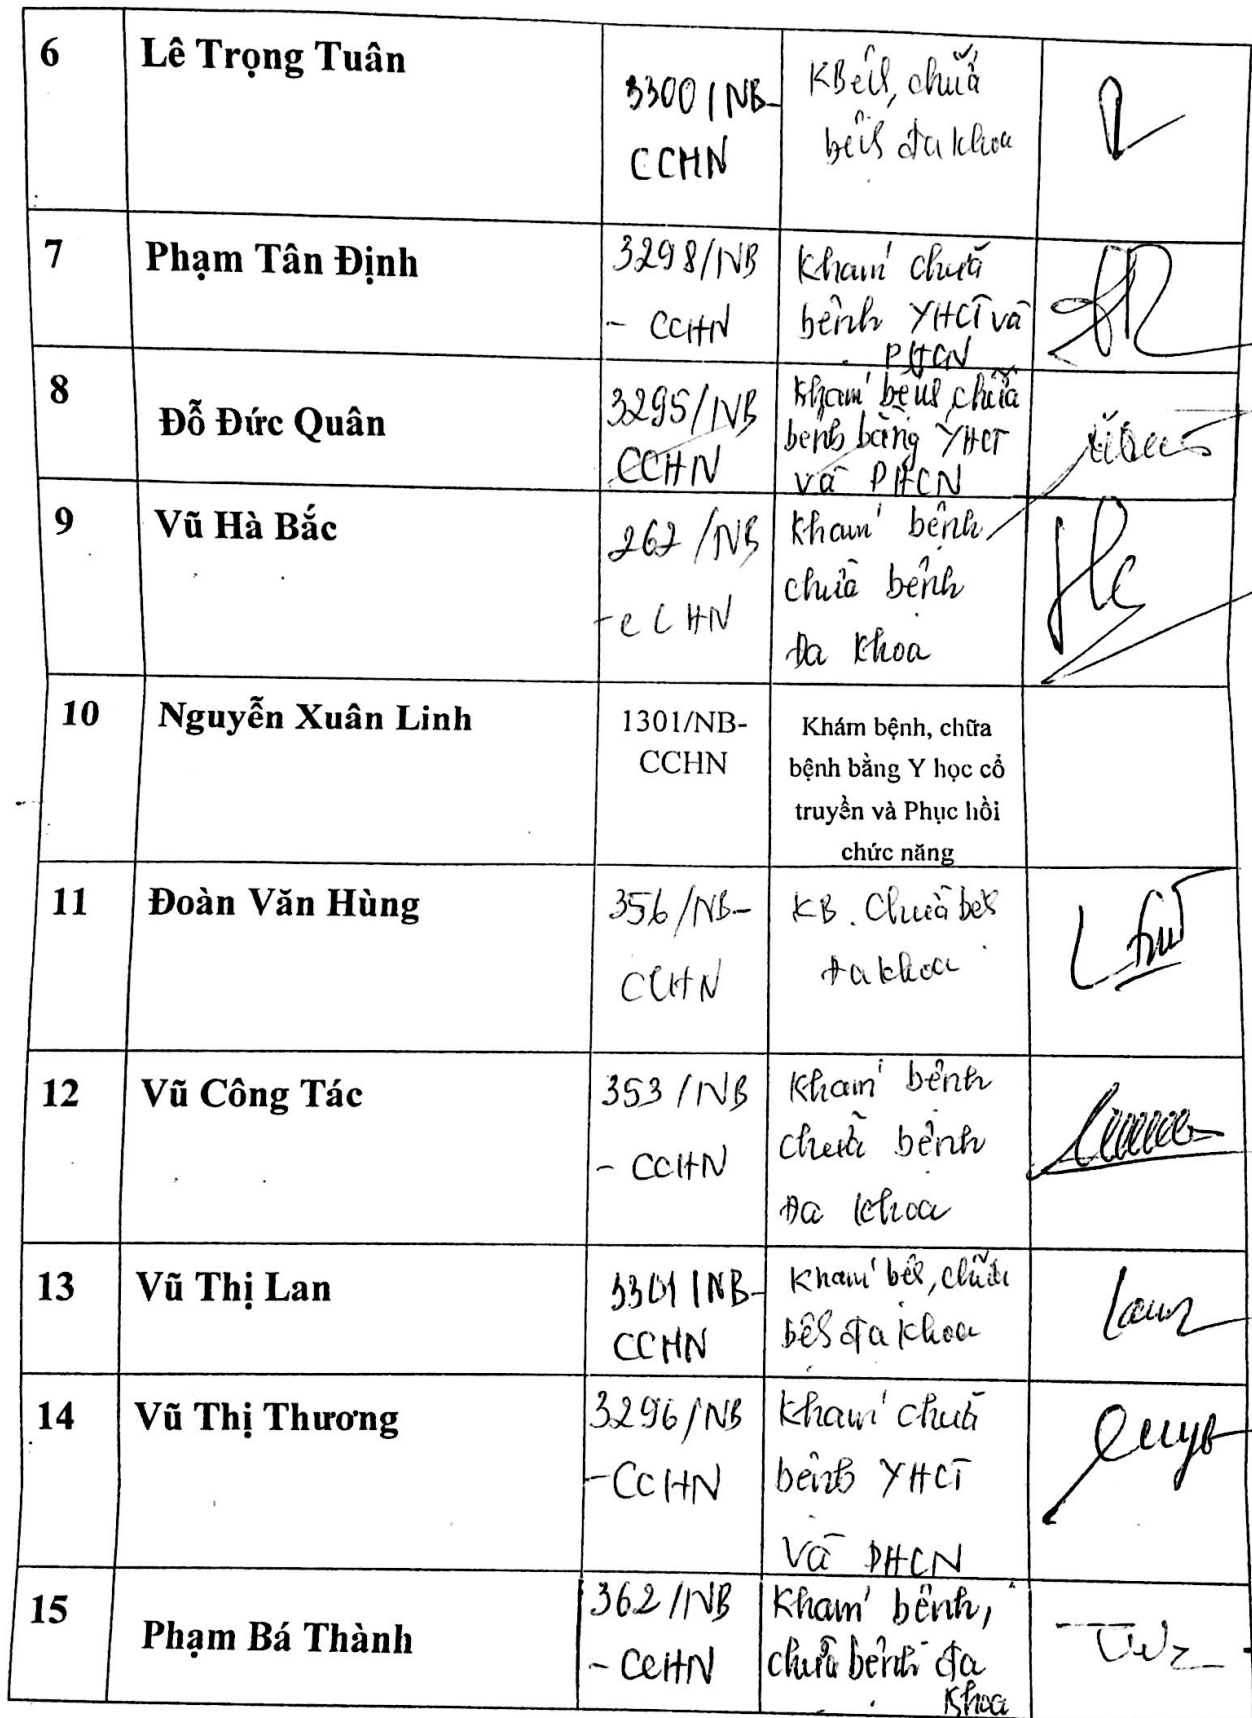 6
Lê Trọng Tuân
3300/NB-
CCHN
KBệnh, chữa
bệnh đa khoa
7
Phạm Tân Định
3298/NB
- CCHN
Khám chữa
bệnh YHCT và
PHCN
8
Đỗ Đức Quân
3295/NB
CCHN
Khám bệnh, chữa
bệnh bằng YHCT
và PHCN
9
Vũ Hà Bắc
262/NB
-CCHN
Khám bệnh,
chữa bệnh
Đa khoa
10
Nguyễn Xuân Linh
1301/NB-
CCHN
Khám bệnh, chữa
bệnh bằng Y học cổ
truyền và Phục hồi
chức năng
11
Đoàn Văn Hùng
356/NB-
CCHN
KB. Chữa bệnh
Đa khoa
12
Vũ Công Tác
353/NB
- CCHN
Khám bệnh
chữa bệnh
Đa khoa
13
Vũ Thị Lan
3301/NB-
CCHN
Khám bệnh, chữa
bệnh đa khoa
Lan
14
Vũ Thị Thương
3296/NB
-CCHN
Khám chữa
bệnh YHCT
và PHCN
15
Phạm Bá Thành
362/NB
- CCHN
Khám bệnh,
chữa bệnh đa
khoa